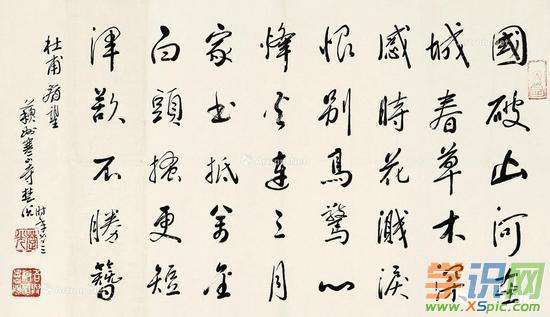 國破山河在
城春草木深
感時花濺淚
恨別鳥驚心
烽火連三月
家書抵萬金
白頭搔更短
渾欲不勝簪
杜甫春望
蘇州寒山寺
時年
学识网
www.XSpic.com